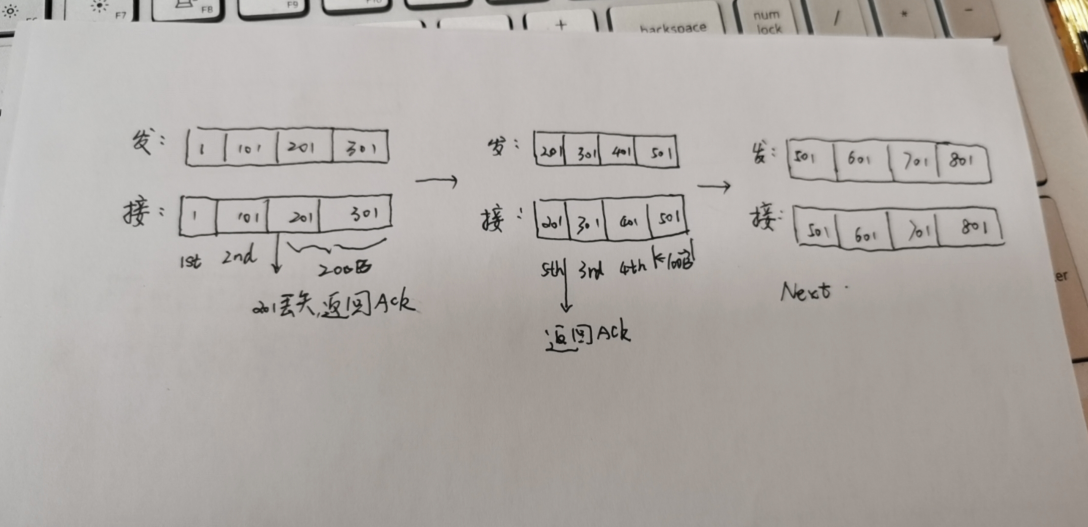 F7
F8
F9
+
backspace
num
lock
/
*
-
发: 1 101 201 301
接: 1 101 201 301
1st 2nd 200B
201丢失,返回Ack
发: 201 301 401 501
接: 201 301 401 501
5th 3rd 4th 100B
返回Ack
发: 501 601 701 801
接: 501 601 701 801
Next.